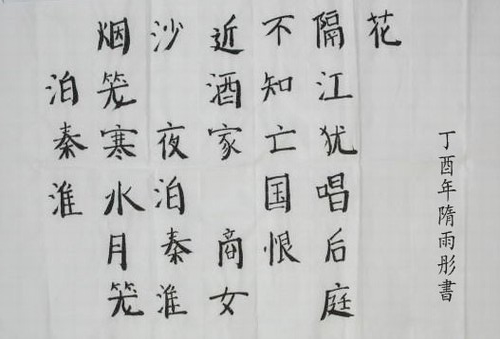 泊秦淮
烟笼寒水月笼
沙 夜泊秦淮
近酒家 商女
不知亡国恨
隔江犹唱后庭
花
丁酉年隋雨彤書